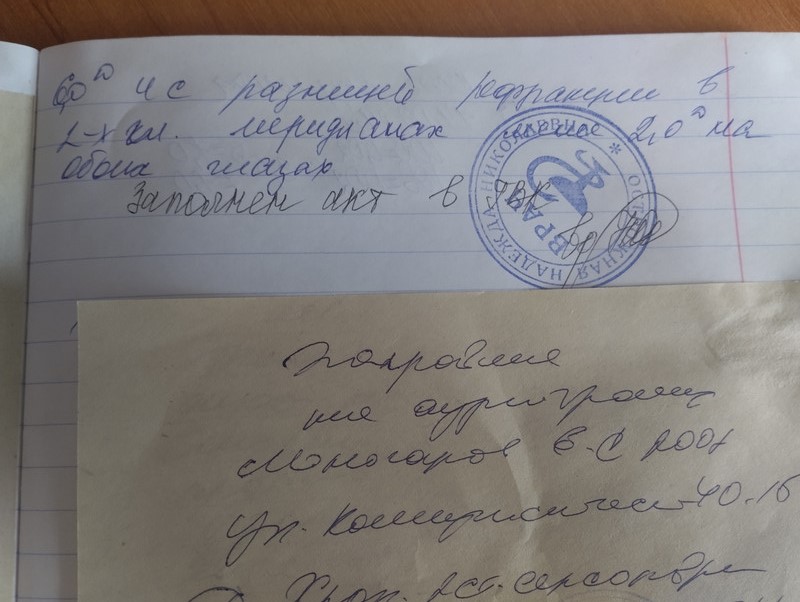 6,0 D и с разницей рефракции в
2-х гл. меридианах менее 2,0 D на
обоих глазах
Заполнен акт в ГВК
НАДЕЖДА НИКОЛАЕВНА
ВРАЧ
направление
на аудиограмму
Моногаров В.С 2004
ул. Коммунистическ 40-16
Хрон.